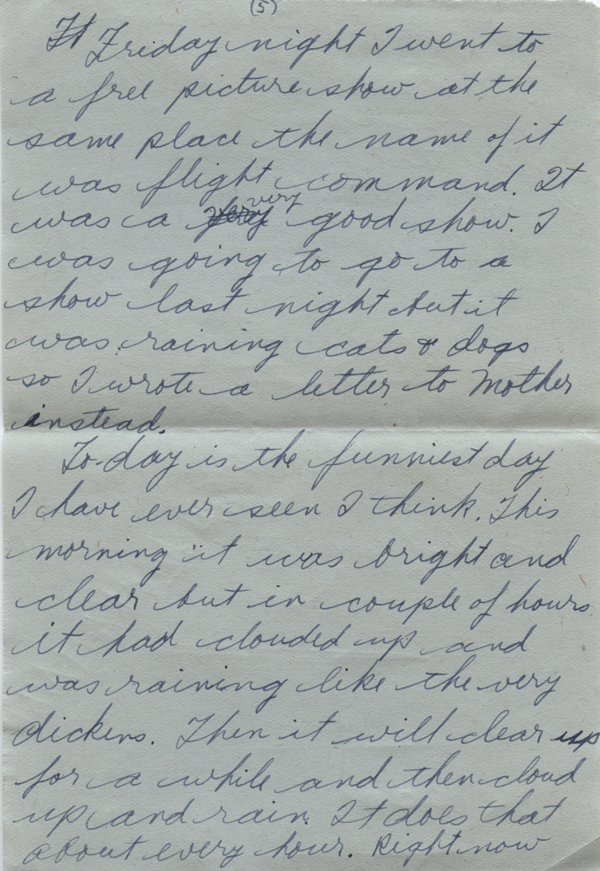 (5)
Friday night I went to
a free picture show at the
same place the name of it
was flight command. It
was a very good show. I
was going to go to a
show last night but it
was raining cats & dogs
so I wrote a letter to Mother
instead.
To-day is the funniest day
I have ever seen I think. This
morning it was bright and
clear but in couple of hours
it had clouded up and
was raining like the very
dickens. Then it will clear up
for a while and then cloud
up and rain. It does that
about every hour. Right now